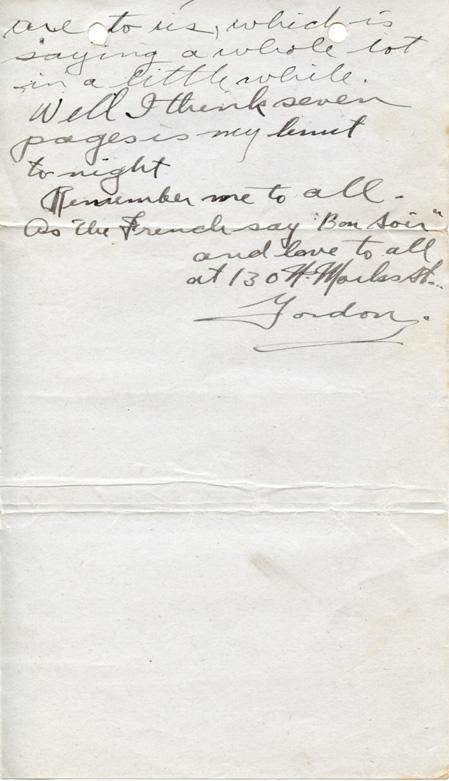 are to us, which is
saying a whole lot
in a little while.
Well I think seven
pages is my limit
to night
Remember me to all.
As the French say "Bon Soir"
and love to all
at 130 N. Marks St.
Gordon.